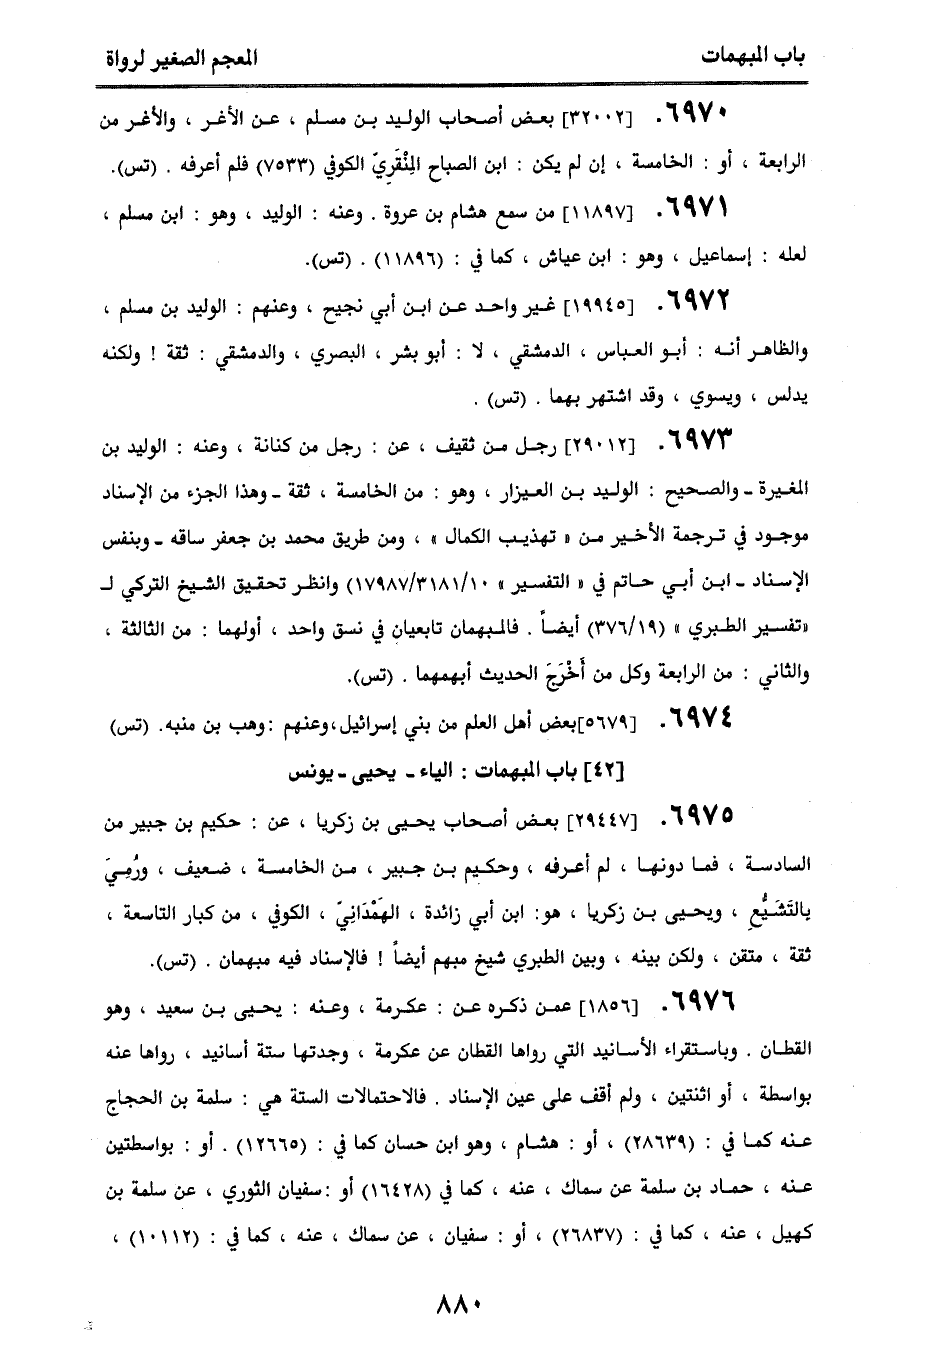 باب المبهمات
المعجم الصغير لرواة
٦٩٧٠. [٣٢٠٠٢] بعض أصحاب الوليد بن مسلم ، عن الأغر ، والأغر من
الرابعة ، أو : الخامسة ، إن لم يكن : ابن الصباح المِنْقَرِيّ الكوفي (٧٥٣٣) فلم أعرفه . (تس).
٦٩٧١. [١١٨٩٧] من سمع هشام بن عروة . وعنه : الوليد ، وهو : ابن مسلم ،
لعله : إسماعيل ، وهو : ابن عياش ، كما في : (١١٨٩٦) . (تس).
٦٩٧٢. [١٩٩٤٥] غير واحد عن ابن أبي نجيح ، وعنهم : الوليد بن مسلم ،
والظاهر أنه : أبو العباس ، الدمشقي ، لا : أبو بشر ، البصري ، والدمشقي : ثقة ! ولكنه
يدلس ، ويسوي ، وقد اشتهر بهما . (تس) .
٦٩٧٣. [٢٩٠١٢] رجل من ثقيف ، عن : رجل من كنانة ، وعنه : الوليد بن
المغيرة ـ والصحيح : الوليد بن العيزار ، وهو : من الخامسة ، ثقة ـ وهذا الجزء من الإسناد
موجود في ترجمة الأخير من « تهذيب الكمال » ، ومن طريق محمد بن جعفر ساقه ـ وبنفس
الإسناد ـ ابن أبي حاتم في « التفسير » ١٧٩٨٧/٣١٨١/١٠) وانظر تحقيق الشيخ التركي لـ
«تفسير الطبري » (٣٧٦/١٩) أيضاً . فالمبهمان تابعيان في نسق واحد ، أولهما : من الثالثة ،
والثاني : من الرابعة وكل من أَخْرَجَ الحديث أبهمهما . (تس).
٦٩٧٤. [٥٦٧٩]بعض أهل العلم من بني إسرائيل،وعنهم :وهب بن منبه. (تس)
[٤٢] باب المبهمات : الياء ـ يحيى ـ يونس
٦٩٧٥. [٢٩٤٤٧] بعض أصحاب يحيى بن زكريا ، عن : حكيم بن جبير من
السادسة ، فما دونها ، لم أعرفه ، وحكيم بن جبير ، من الخامسة ، ضعيف ، ورُمِيَ
بالتَشَيُّعِ ، ويحيى بن زكريا ، هو: ابن أبي زائدة ، الهَمْدَانِيّ ، الكوفي ، من كبار التاسعة ،
ثقة ، متقن ، ولكن بينه ، وبين الطبري شيخ مبهم أيضاً ! فالإسناد فيه مبهمان . (تس).
٦٩٧٦. [١٨٥٦] عمن ذكره عن : عكرمة ، وعنه : يحيى بن سعيد ، وهو
القطان . وباستقراء الأسانيد التي رواها القطان عن عكرمة ، وجدتها ستة أسانيد ، رواها عنه
بواسطة ، أو اثنتين ، ولم أقف على عين الإسناد . فالاحتمالات الستة هي : سلمة بن الحجاج
عنه كما في : (٢٨٦٣٩) ، أو : هشام ، وهو ابن حسان كما في : (١٢٦٦٥) . أو : بواسطتين
عنه ، حماد بن سلمة عن سماك ، عنه ، كما في (١٦٤٢٨) أو :سفيان الثوري ، عن سلمة بن
كهيل ، عنه ، كما في : (٢٦٨٣٧) ، أو : سفيان ، عن سماك ، عنه ، كما في : (١٠١١٢) ،
٨٨٠